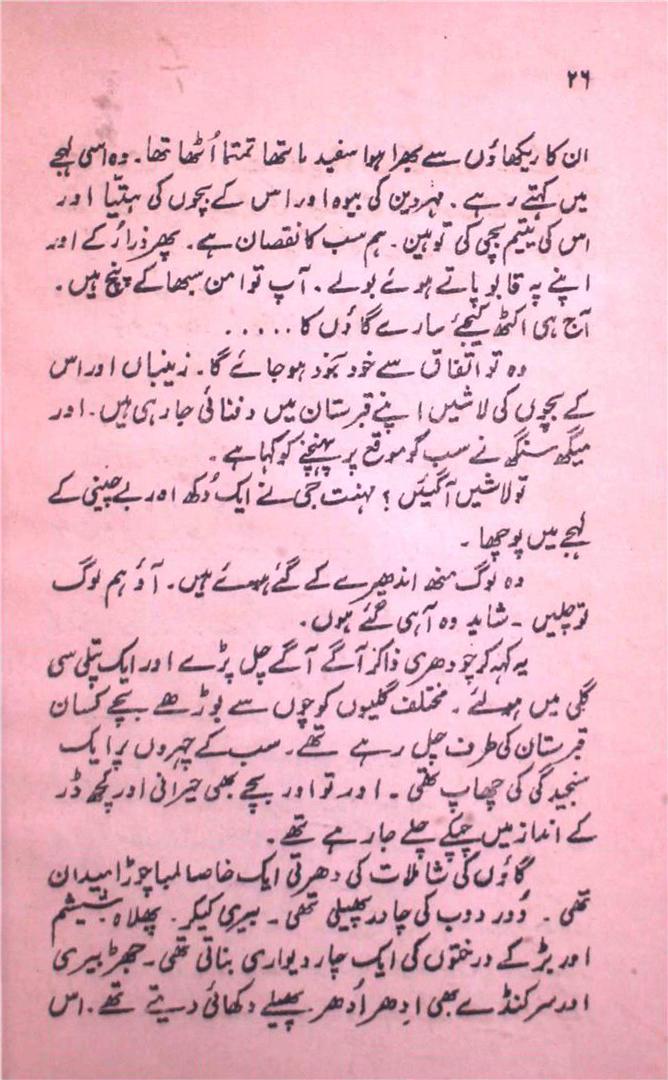 ۲۶
ان کا ریکھاؤں سے بھرا ہوا سفید ماتھا تمتما اُٹھا تھا۔ وہ اسی لہجے
میں کہتے رہے۔ مہر دین کی بیوہ اور اس کے بچوں کی ہتیّا اور
اس کی یتیم بچی کی توہین۔ ہم سب کا نقصان ہے۔ پھر ذرا رُکے اور
اپنے پہ قابو پاتے ہوئے بولے۔ آپ تو امن سبھا کے پنچ ہیں۔
آج ہی اکٹھ کیجئے سارے گاؤں کا .....
وہ تو اتفاق سے خود بخود ہو جائے گا۔ زینباں اور اس
کے بچوں کی لاشیں اپنے قبرستان میں دفنائی جا رہی ہیں۔ اور
میگھ سنگھ نے سب کو موقع پر پہنچنے کو کہا ہے۔
تو لاشیں آگئیں؟ مہنت جی نے ایک دُکھ اور بے چینی کے
لہجے میں پوچھا۔
وہ لوگ منھ اندھیرے کے گئے ہوئے ہیں۔ آؤ ہم لوگ
تو چلیں۔ شاید وہ آ ہی گئے ہوں۔
یہ کہہ کر چودھری ذاکر آگے آگے چل پڑے اور ایک پتلی سی
گلی میں ہولئے۔ مختلف گلیوں کوچوں سے بوڑھے بچے کسان
قبرستان کی طرف چل رہے تھے۔ سب کے چہروں پر ایک
سنجیدگی کی چھاپ تھی۔ اور تو اور بچے بھی حیرانی اور کچھ ڈر
کے انداز میں چپکے چلے جا رہے تھے۔
گاؤں کی شاملات کی دھرتی ایک خاصا لمبا چوڑا میدان
تھی۔ دُور دوب کی چادر پھیلی تھی۔ بیری کیکر۔ پھلاہ شیشم
اور بڑ کے درختوں کی ایک چار دیواری بناتی تھی۔ جھڑ بیری
اور سرکنڈے بھی اِدھر اُدھر پھیلے دکھائی دیتے تھے۔ اس